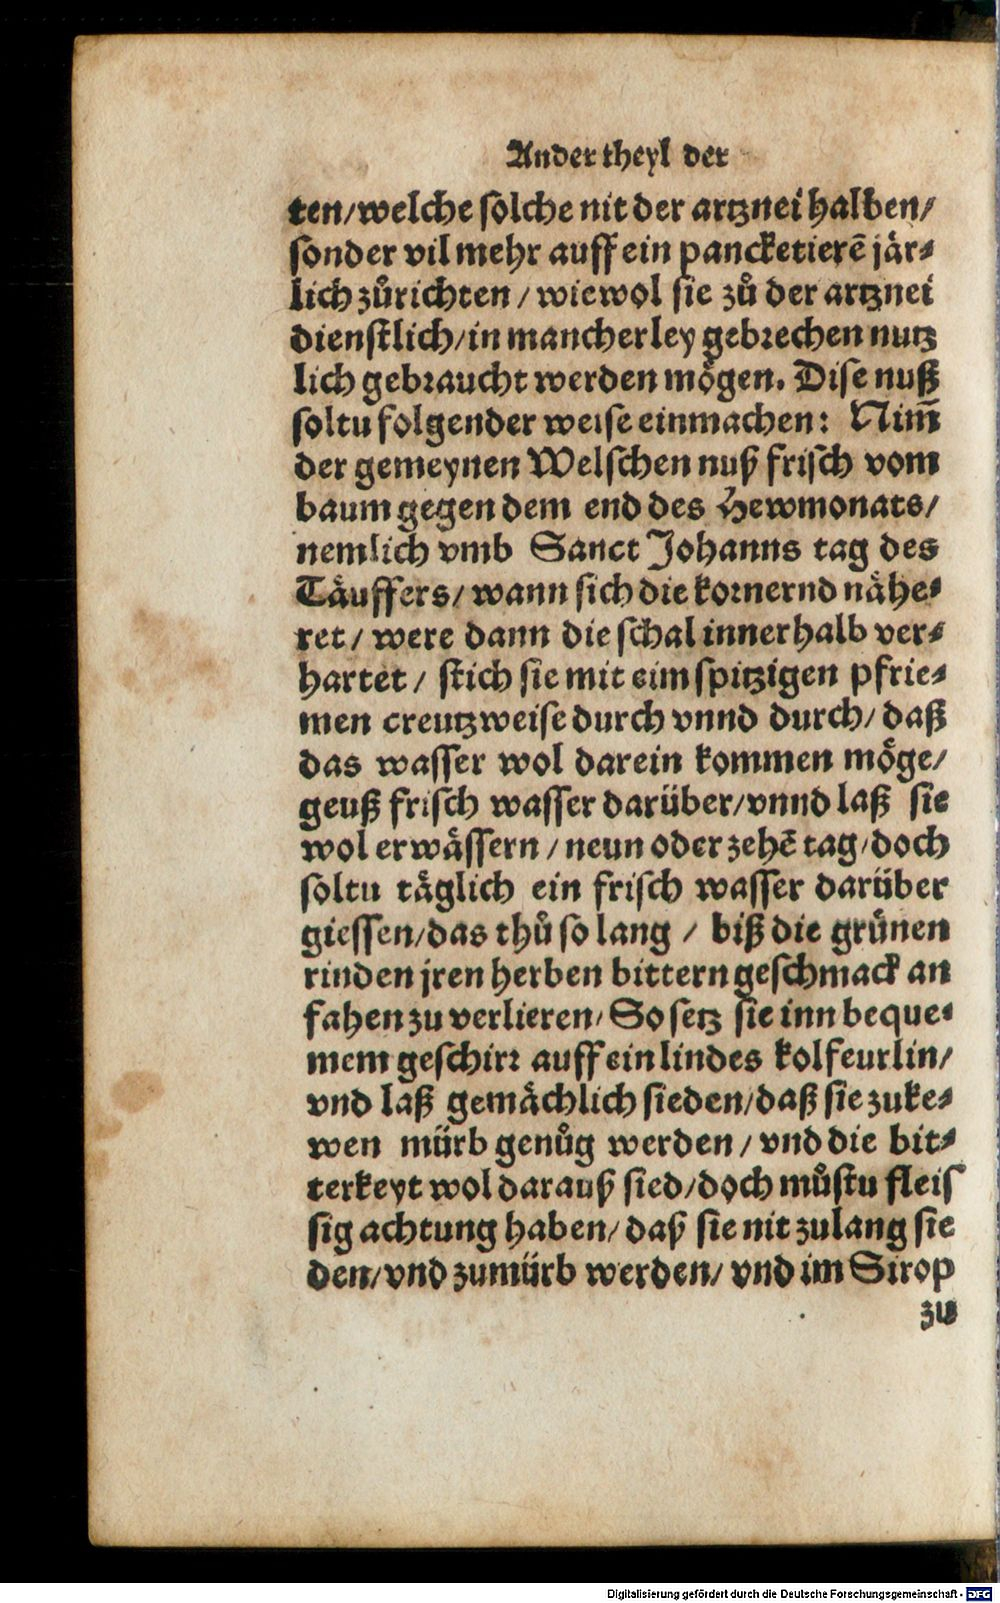 Ander theyl der
ten/welche solche nit der artznei halben/
sonder vil mehr auff ein pancketierẽ jär-
lich zůrichten / wiewol sie zů der artznei
dienstlich/in mancherley gebrechen nutz
lich gebraucht werden mögen. Dise nuß
soltu folgender weise einmachen: Nim̃
der gemeynen Welschen nuß frisch vom
baum gegen dem end des Hewmonats/
nemlich vmb Sanct Johanns tag des
Täuffers/ wann sich die kornernd nähe-
ret / were dann die schal innerhalb ver-
hartet / stich sie mit eim spitzigen pfrie-
men creutzweise durch vnnd durch/ daß
das wasser wol darein kommen möge/
geuß frisch wasser darüber/vnnd laß sie
wol erwässern / neun oder zehẽ tag/doch
soltu täglich ein frisch wasser darüber
giessen/das thů so lang / biß die grünen
rinden jren herben bittern geschmack an
fahen zu verlieren/ So setz sie inn beque-
mem geschirr auff ein lindes kolfeurlin/
vnd laß gemächlich sieden/daß sie zuke-
wen mürb genůg werden / vnd die bit-
terkeyt wol darauß sied/doch můstu fleis
sig achtung haben/ daß sie nit zulang sie
den/vnd zumürb werden/ vnd im Sirop
zu
Digitalisierung gefördert durch die Deutsche Forschungsgemeinschaft - DFG